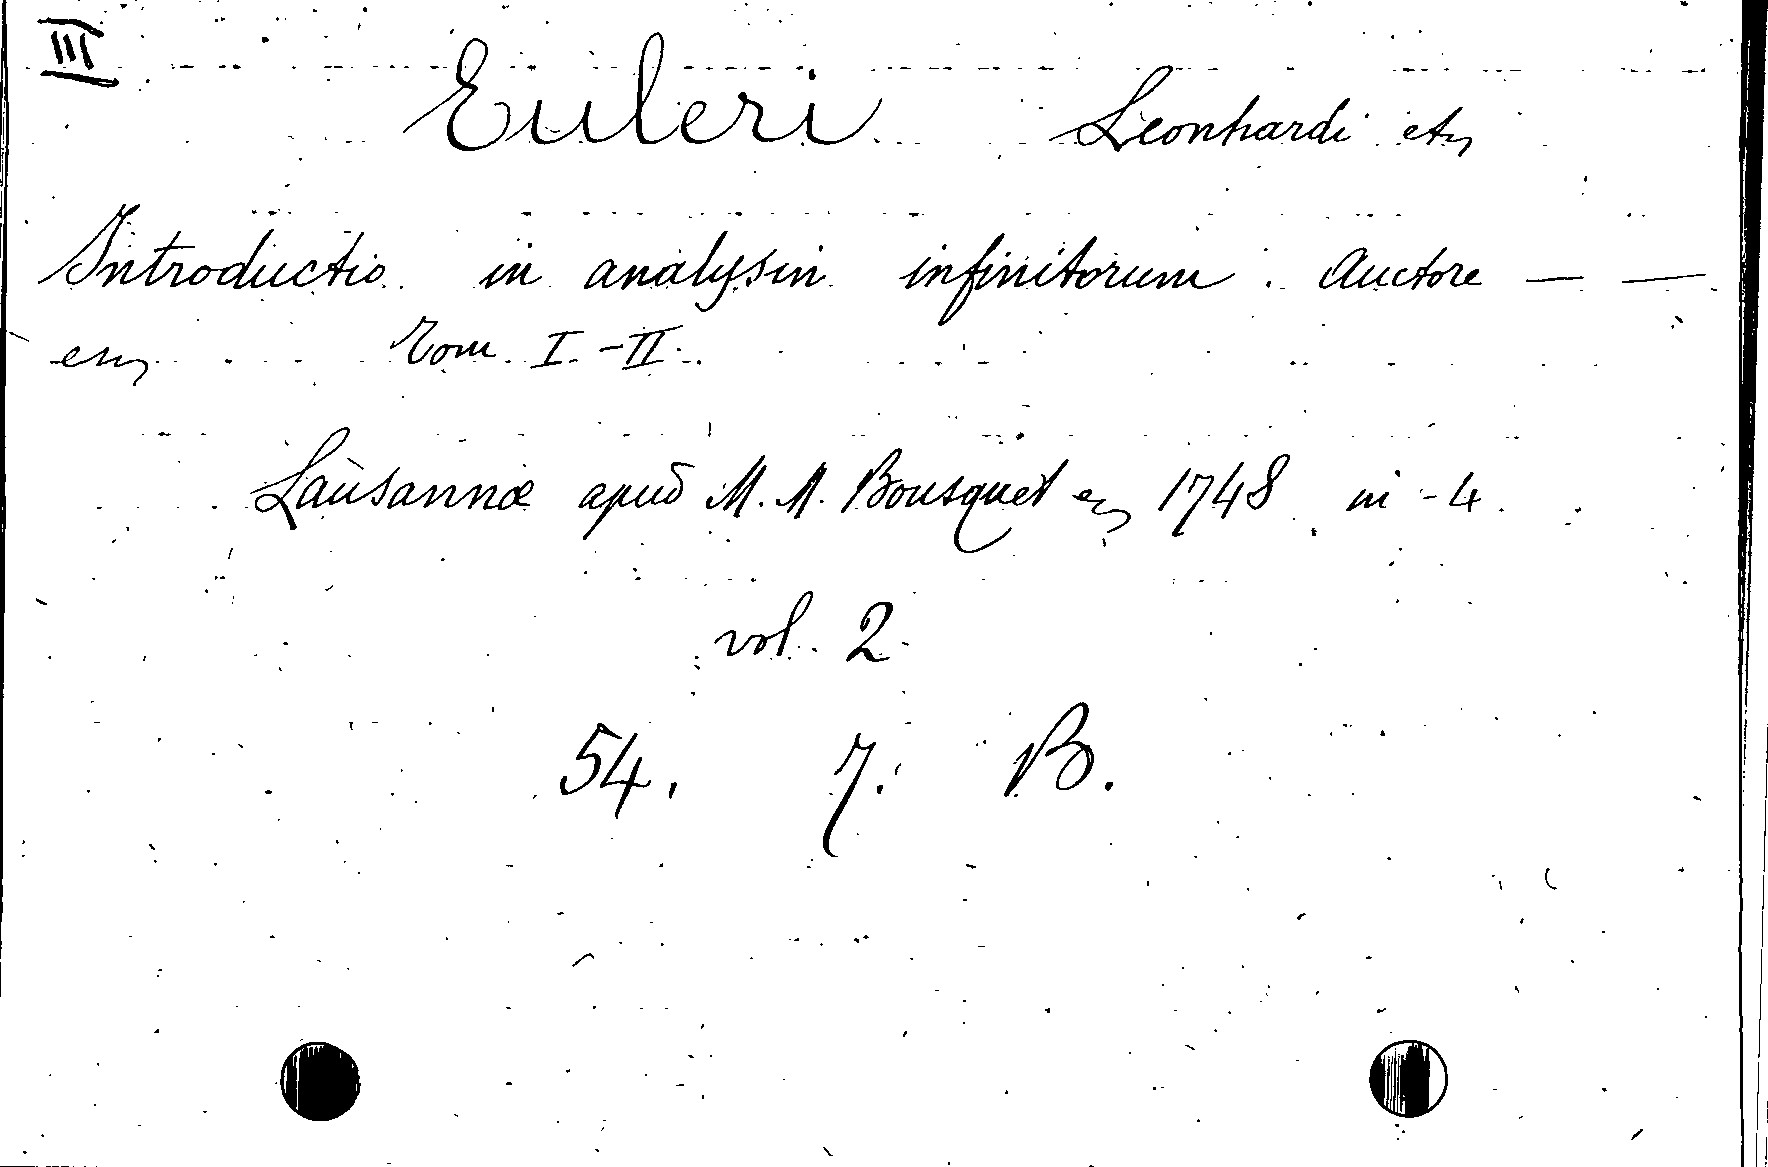 III
Euleri Leonhardi etc
Introductio in analysin infinitorum. Auctore — —
etc Tom I.-II.
Lausannæ apud M. M. Bousquet etc 1748 in-4.
vol. 2
54. 7. B.